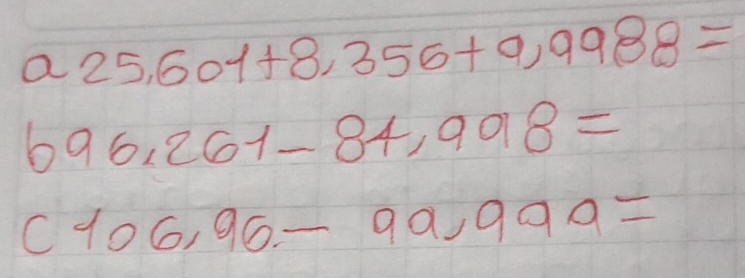 a 25,601+8,356+9,9988=
b 96,261-84,998=
c 106,96.- 99,999=